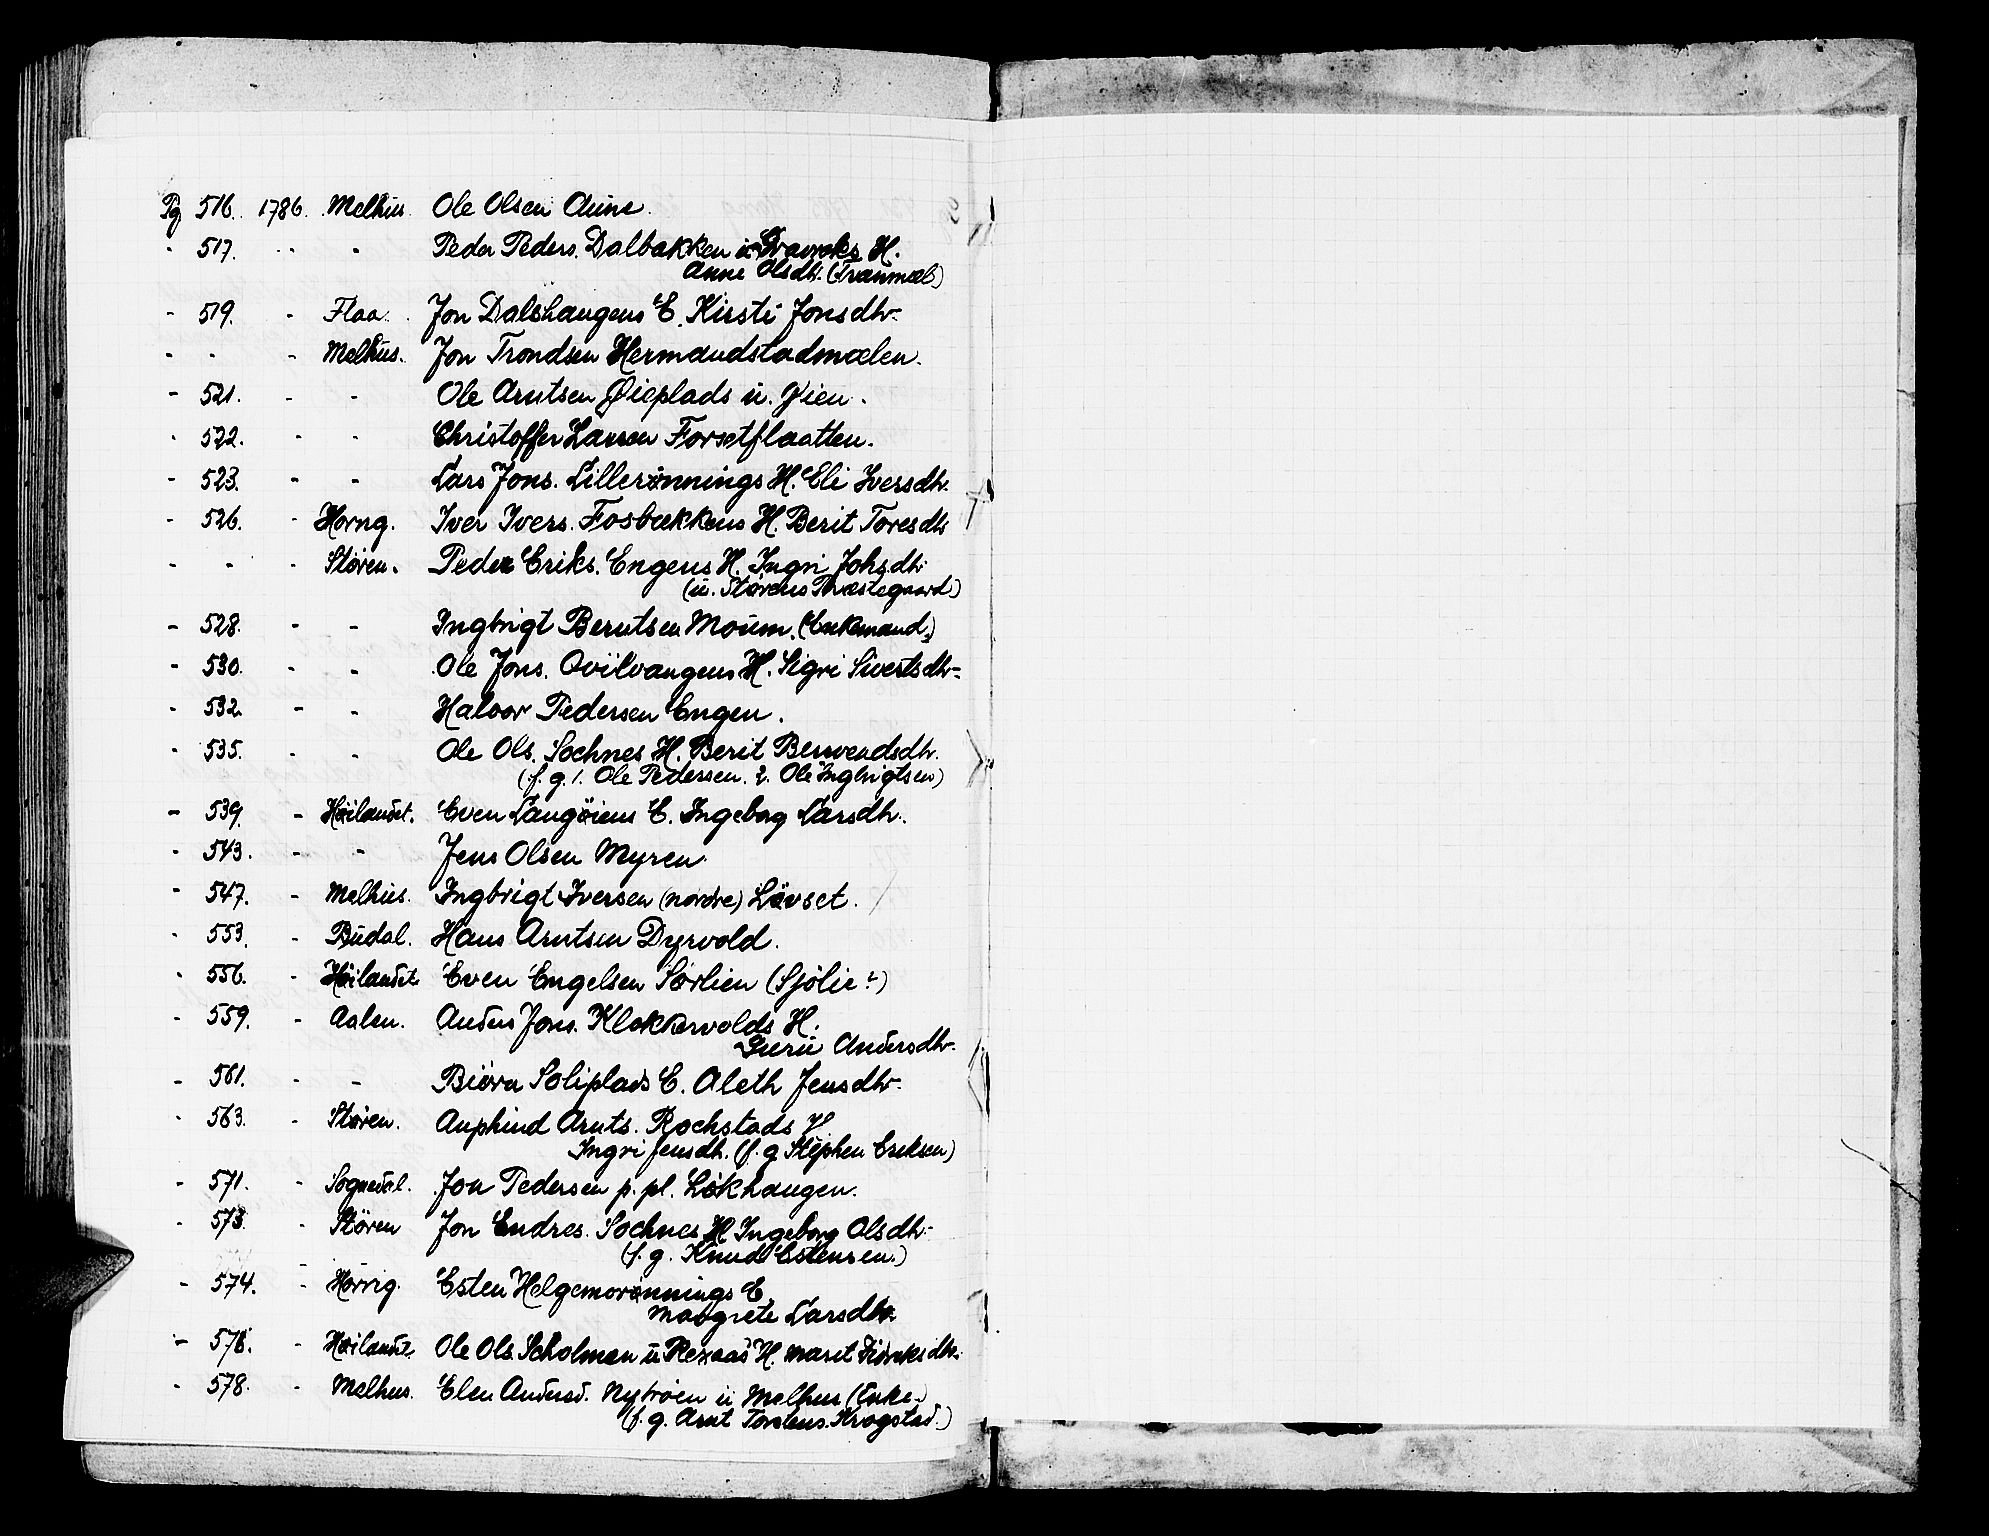 Pg 516. 1786. Melhus. Ole Olsen Aune.
- 517. - - - Peder Peders. Dalbakken u. H.
Anne Olsdtr. (Tranmæl)
- 519. - Flaa. Jon Dalshaugens E. Kirsti Jonsdtr.
- - - Melhus. Jon Trondsen Hermandstadmælen.
- 521. - - Ole Arntsen Øieplads u. Øien.
- 522. - - Christoffer Larsen Forsetflaatten.
- 523. - - Lars Jons. Lillerønnings H. Eli Iversdtr.
- 526. - Horng. Iver Ivers. Fosbækkens H. Berit Toresdtr
- - - Støren. Peder Eriks. Engens H. Ingri Johsdtr.
(u. Størens Præstegaard)
- 528. - - Ingbrigt Berntsen Moum. (Enkemand.)
- 530. - - Ole Jons. Qvilvangens H. Sigri Sivertsdtr.
- 532. - - Halvor Pedersen Engen.
- 535. - - Ole Ols. Sochnes H. Berit Bersvendsdtr.
(f. g. 1. Ole Pedersen. 2. Ole Ingbrigtsen)
- 539. - Høilandet. Even Langøiens E. Ingeborg Larsdtr.
- 543. - - Jens Olsen Myren.
- 547. - Melhus. Ingbrigt Iversen (nordre) Løvset.
- 553. - Budal. Hans Arntsen Dyrvold.
- 556. - Høilandet. Even Engelsen Sørlien (Sjølie?)
- 559. - Aalen. Anders Jons. Klokkervolds H.
Guru Andersdtr.
- 561. - - Biørn Soliplads E. Aleth Jensdtr.
- 563. - Støren. Anphind Arnts. Rochstads H
Ingri Jensdtr. (f. g Stephen Eriksen)
- 571. - Sognedal. Jon Pedersen p. pl. Løkhaugen.
- 573. - Støren Jon Endres. Sochnes H Ingeborg Olsdtr.
(f. g. Knud Estensen.)
- 574. - Horrig. Esten Helgemorønnings E.
Margrete Larsdtr.
- 576. - Høilandet. Ole Ols. Scholmen u H. Marit
- 578. - Melhus. Elen Andersd. Nytrøen u Melhus (Enke.)
(f. g. Arnt Krogstad.)